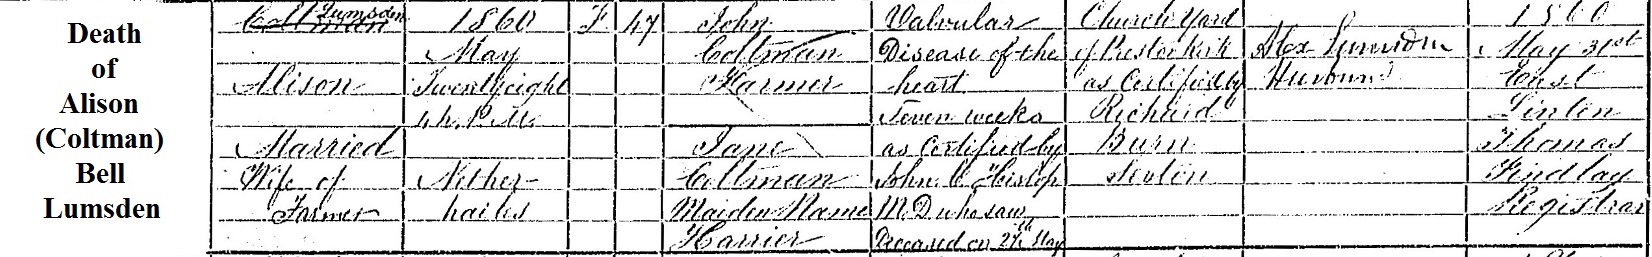 Death
of
Alison
(Coltman)
Bell
Lumsden
Lumsden
Alison
Married
Wife of
Farmer
1860
May
Twenty eight
4h. P.M.
Nether
hailes
F
47
John
Coltman
Farmer
Jane
Coltman
Maiden Name
Harrier
Valvular
Disease of the
heart
Seven weeks
as Certified by
John C. Hislop
M.D. who saw
Deceased on 27th May
Church Yard
of Prestonkirk
as Certified by
Richard
Burn
Sexton
Alex Lumsden
Husband
1860
May 31st
East
Linton
Thomas
Findlay
Registrar